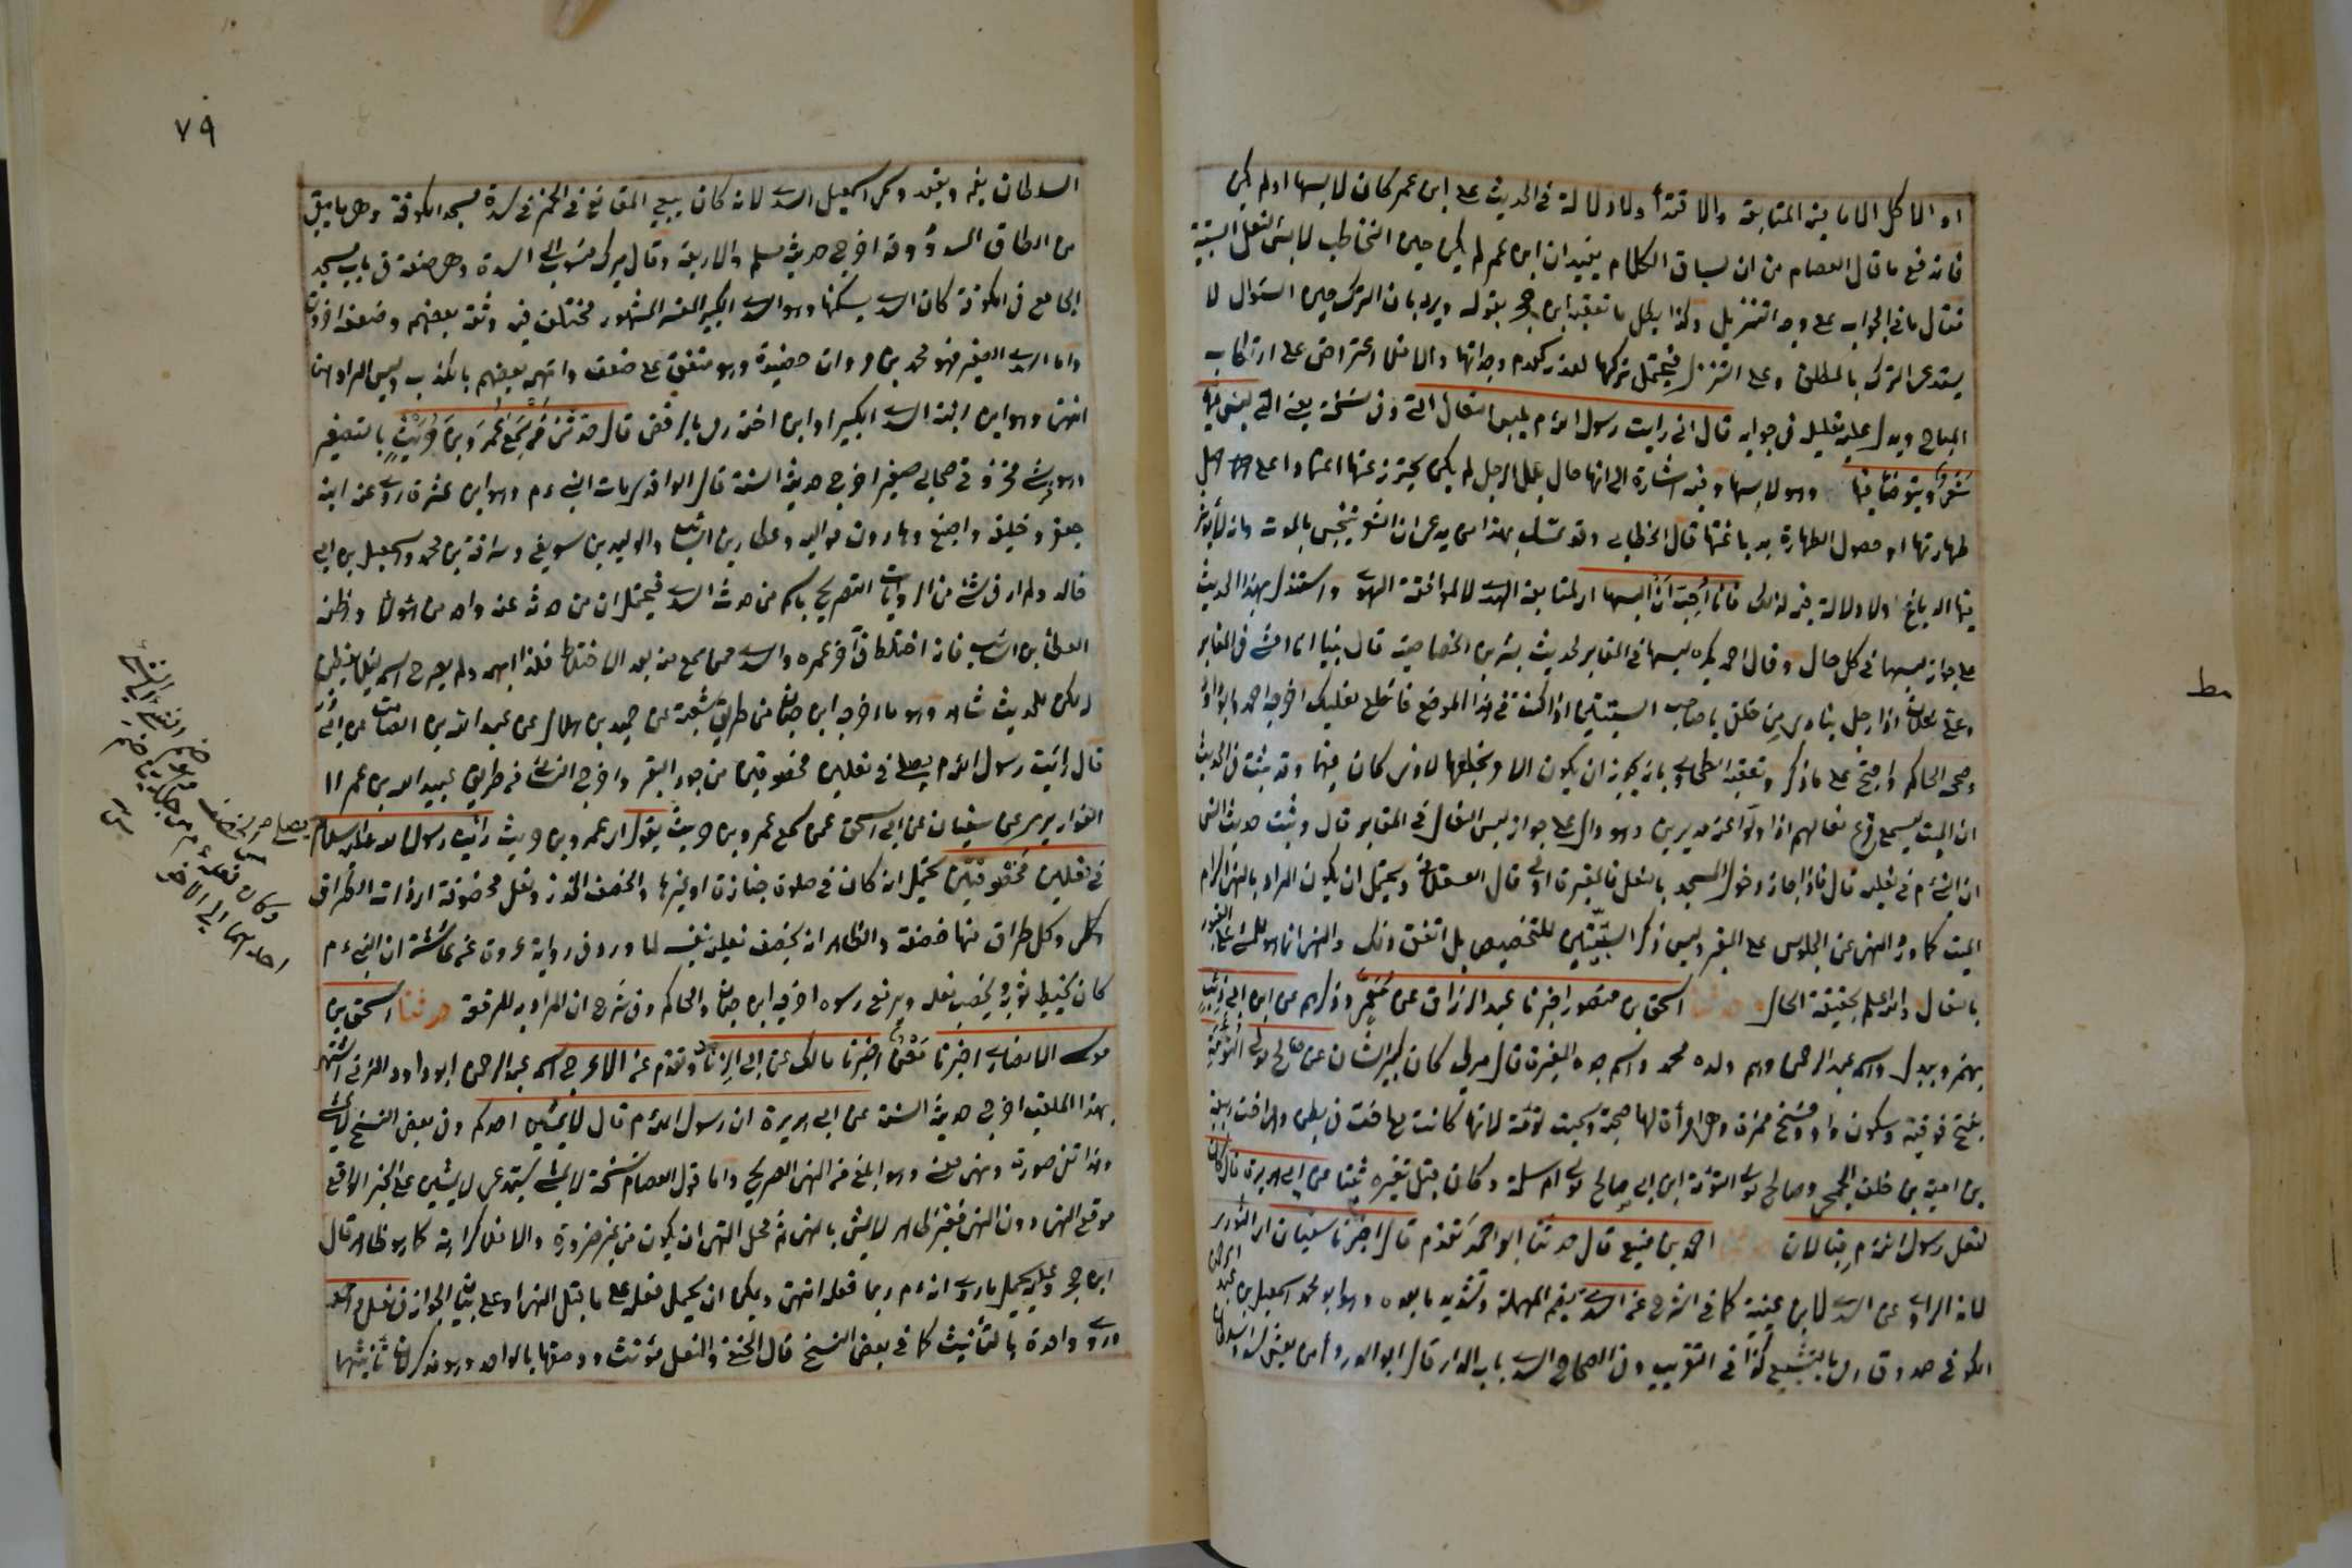 او الا كل الامامية المتابعة والاقتداء ولا دلالة في الحديث على ابن عمر كان لابسها اولم يكن
فاندفع ما قال العصام من ان لسياق الكلام يفيد ان ابن عمر لم يكن حين التخاطب لابس النعل السبتية
فقال ما في الجواب على وجه التنزيل وكذا يبطل ما تعقبه ابن حجر بقوله ويرد بان الترك حين السؤال لا
يستدعى الترك بالمطلق وعلى التنزل فيحتمل تركها لعذر كعدم وجدانها والا فلا اعتراض على ارتكاب
المباح ويدل عليه تعليله في جوابه قال اني رايت رسول الله م يلبس النعال التي وفي نسخة يعني التي ليس فيها
شعر ويتوضأ فيها وهو لابسها وفيه اشارة الى انها حال بلل الرجل لم يكن يحترز عنها اعتمادا على اصل
طهارتها او حصول الطهارة بدباغتها قال الخطابي وقد تمسك بهذا من يدعى ان الشعر ينجس بالموت وانه لا يؤثر
فيها الدباغ ولا دلالة فيه لذلك فانا احب ان البسها اي لمتابعة الهدى لا لموافقة الهوى واستدل بهذا الحديث
على جواز لبسها في كل حال وقال احمد يكره لبسها في المقابر لحديث بشير بن الخصاصية قال بينا انا امشي في المقابر
وعلي نعلان اذا رجل ينادي من خلفي يا صاحب السبتيتين اذا كنت في هذا الموضع فاخلع نعليك اخرجه احمد وابو داود
وصححه الحاكم واحتج على ما ذكر وتعقبه الطحاوي بانه يجوز ان يكون الامر بخلعها لاذى كان فيهما وقد ثبت في الحديث
ان الميت يسمع قرع نعالهم اذا ولوا عنه مدبرين وهو دال على جواز لبس النعال في المقابر قال وثبت حديث انس
ان النبي م في نعليه قال فاذا جاز دخول المسجد بالنعل فالمقبرة اولى قال العسقلاني ويحتمل ان يكون المراد بالنهي اكرام
الميت كما ورد النهي عن الجلوس على القبر وليس ذكر السبتيتين للتخصيص بل اتفق ذلك والنهي انما هو للمشي على القبور
بالنعال والله اعلم بحقيقة الحال حدثنا اسحق بن منصور اخبرنا عبد الرزاق عن معمر وذكرهم عن ابن ابي ذئب
بهمز ويبدل واسمه عبد الرحمن وهم ولده محمد واسم جده المغيرة قال ميرك كان كبير الشان عن صالح مولى التوأمة
بفتح فوقية وسكون واو وفتح همزة وهي امرأة لها صحبة وسميت توئمة لانها كانت مع اخت في بطن وهي اخت ربيعة
بن امية بن خلف الجمحي وصالح مولى التوئمة ابن ابي صالح مولى ام سلمة وكان قبل تغيره ثبتا عن ابي هريرة قال كان
لنعل رسول الله م قبالان حدثنا احمد بن منيع قال حدثنا ابو احمد تقدم قال اخبرنا سفيان اي الثوري
لانه الراوي عن السدي لا ابن عيينة كما في الشرح عن السدي بضم المهملة وتشديد ما بعده وهو ابو محمد اسمعيل بن عبد الرحمن
الكوفي صدوق رمي بالتشيع كذا في التقريب وفي الصحاح السدي باب الدار قال ابو الدرداء من يغش سدد السلطان
السلطان يقم ويقعد وسمى اسمعيل السدي لانه كان يبيع المقانع في الخمر في سدة مسجد الكوفة وهي ما يبقى
من الطاق المسدود وقد اخرج حديثه مسلم والاربعة وقال ميرك منسوب الى السدة وهي صفة في باب المسجد
الجامع في الكوفة كان السدي يسكنها وهو السدي الكبير المفسر المشهور مختلف فيه وثقه بعضهم وضعفه اخرون
واما السدي الصغير فهو محمد بن مروان حفيده وهو متفق على ضعفه واتهمه بعضهم بالكذب وليس المراد هنا
انتهى وهو ابن ابنة السدي الكبير او ابن اخته رمي بالرفض قال حدثني من سمع عمرو بن حريث بالتصغير
وهو قرشي مخزومي صحابي صغير اخرج حديثه الستة قال الواقدي مات النبي م وهو ابن عشرة روى عنه ابنه
جعفر وخليفة واصبغ وهارون مواليه وعطاء بن السائب والوليد بن سويغ وسراقة بن محمد واسمعيل بن ابي
خالد ولم ار في شئ من الروايات التصريح باسم من حدث السدي فيحتمل ان من حدثه عنه واحد من هؤلاء واظنه
العطاء بن السائب فانه اختلط في آخر عمره والسدي ممن سمع منه بعد الاختلاط فلذا ابهمه ولم يصرح اسمه
لكن للحديث شاهد وهو ما اخرجه ابن حبان من طريق شعبة عن حميد بن هلال عن عبد الله بن الصامت عن ابي ذر
قال رأيت رسول الله م يصلي في نعلين مخصوفتين من جلود البقر واخرج النسائي من طريق عبيد الله بن عمر
القواريري عن سفيان عن ابي اسحق عمن سمع عمرو بن حريث يقول اي عمرو بن حريث رأيت رسول الله عليه السلام
في نعلين مخصوفتين يحتمل انه كان في صلوة جنازة او غيرها والخصف الخرز ونعل مخصوفة اي ذات الطراق
وكل طراق منها خصفة والظاهر انه يخصف نعليه بنفسه لما ورد في رواية عروة عن عائشة ان النبي م
كان يخيط ثوبه ويخصف نعله ويرقع دلوه اخرجه ابن حبان والحاكم وفي شرح ان المراد به المرقعة حدثنا اسحق بن
موسى الانصاري اخبرنا معن اخبرنا مالك عن ابي الزناد وتقدم عن الاعرج اسمه عبد الرحمن ابو داود المزني اشتهر
بهذا اللقب اخرج حديثه الستة عن ابي هريرة ان رسول الله م قال لا يمشين احدكم وفي بعض النسخ لا يمشي
وهذا نفي صورة ونهي معنى وهو ابلغ من النهي الصريح واما قول العصام نسخة لا يمشي يستدعى لا يمشين على الخبر الواقع
موقع النهي دون النهي فغير ظاهر لا يشي بالنهي ثم محل النهي ان يكون من غير ضرورة والا فلا كراهة كما هو ظاهر قال
ابن حجر وعليه يحمل ما روى انه م ربما فعله انتهى ويمكن ان يحمل فعله على ما قبل النهي او على بيان الجواز في نعل
واحدة بالتأنيث كما في بعض النسخ قال الحنفي والنعل مؤنث ووصفها بالواحد وهو مذكر لان تأنيثها
٧٩
مط